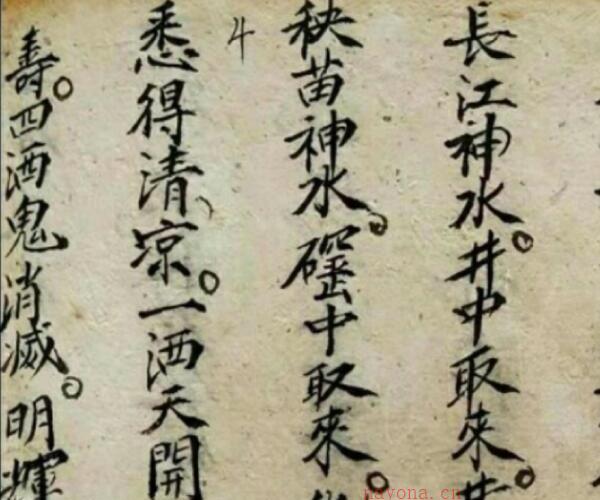 長江神水。井中取來。井
秧苗神水。中取來。
4
悉得清凉。一洒天開
壽。四洒鬼消滅。明輝
navona.cn